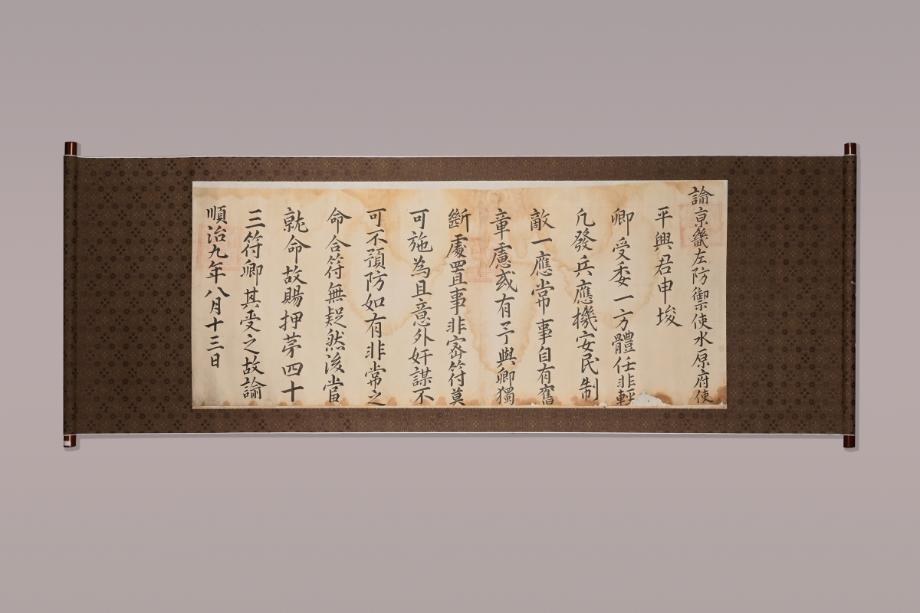 諭京畿左防禦使水原府使
平興君申埈
卿受委一方體任非輕
凡發兵應機安民制
敵一應常事自有舊
章慮或有予與卿獨
斷處置事非密符莫
可施為且意外奸謀不
可不預防如有非常之
命合符無疑然後當
就命故賜押第四十
三符卿其受之故諭
順治九年八月十三日